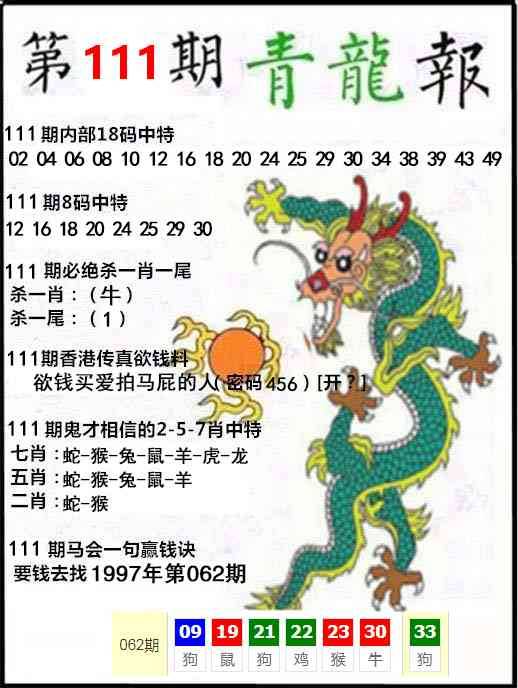 第111期青龍報
111期内部18码中特
02 04 06 08 10 12 16 18 20 24 25 29 30 34 38 39 43 49
111期8码中特
12 16 18 20 24 25 29 30
111期必绝杀一肖一尾
杀一肖：（牛）
杀一尾：（1）
111期香港传真欲钱料
欲钱买爱拍马屁的人(密码456）[开？]
111期鬼才相信的2-5-7肖中特
七肖：蛇-猴-兔-鼠-羊-虎-龙
五肖：蛇-猴-兔-鼠-羊
二肖：蛇-猴
111期马会一句赢钱诀
要钱去找1997年第062期
062期 09 19 21 22 23 30 33
狗 鼠 狗 鸡 猴 牛 狗